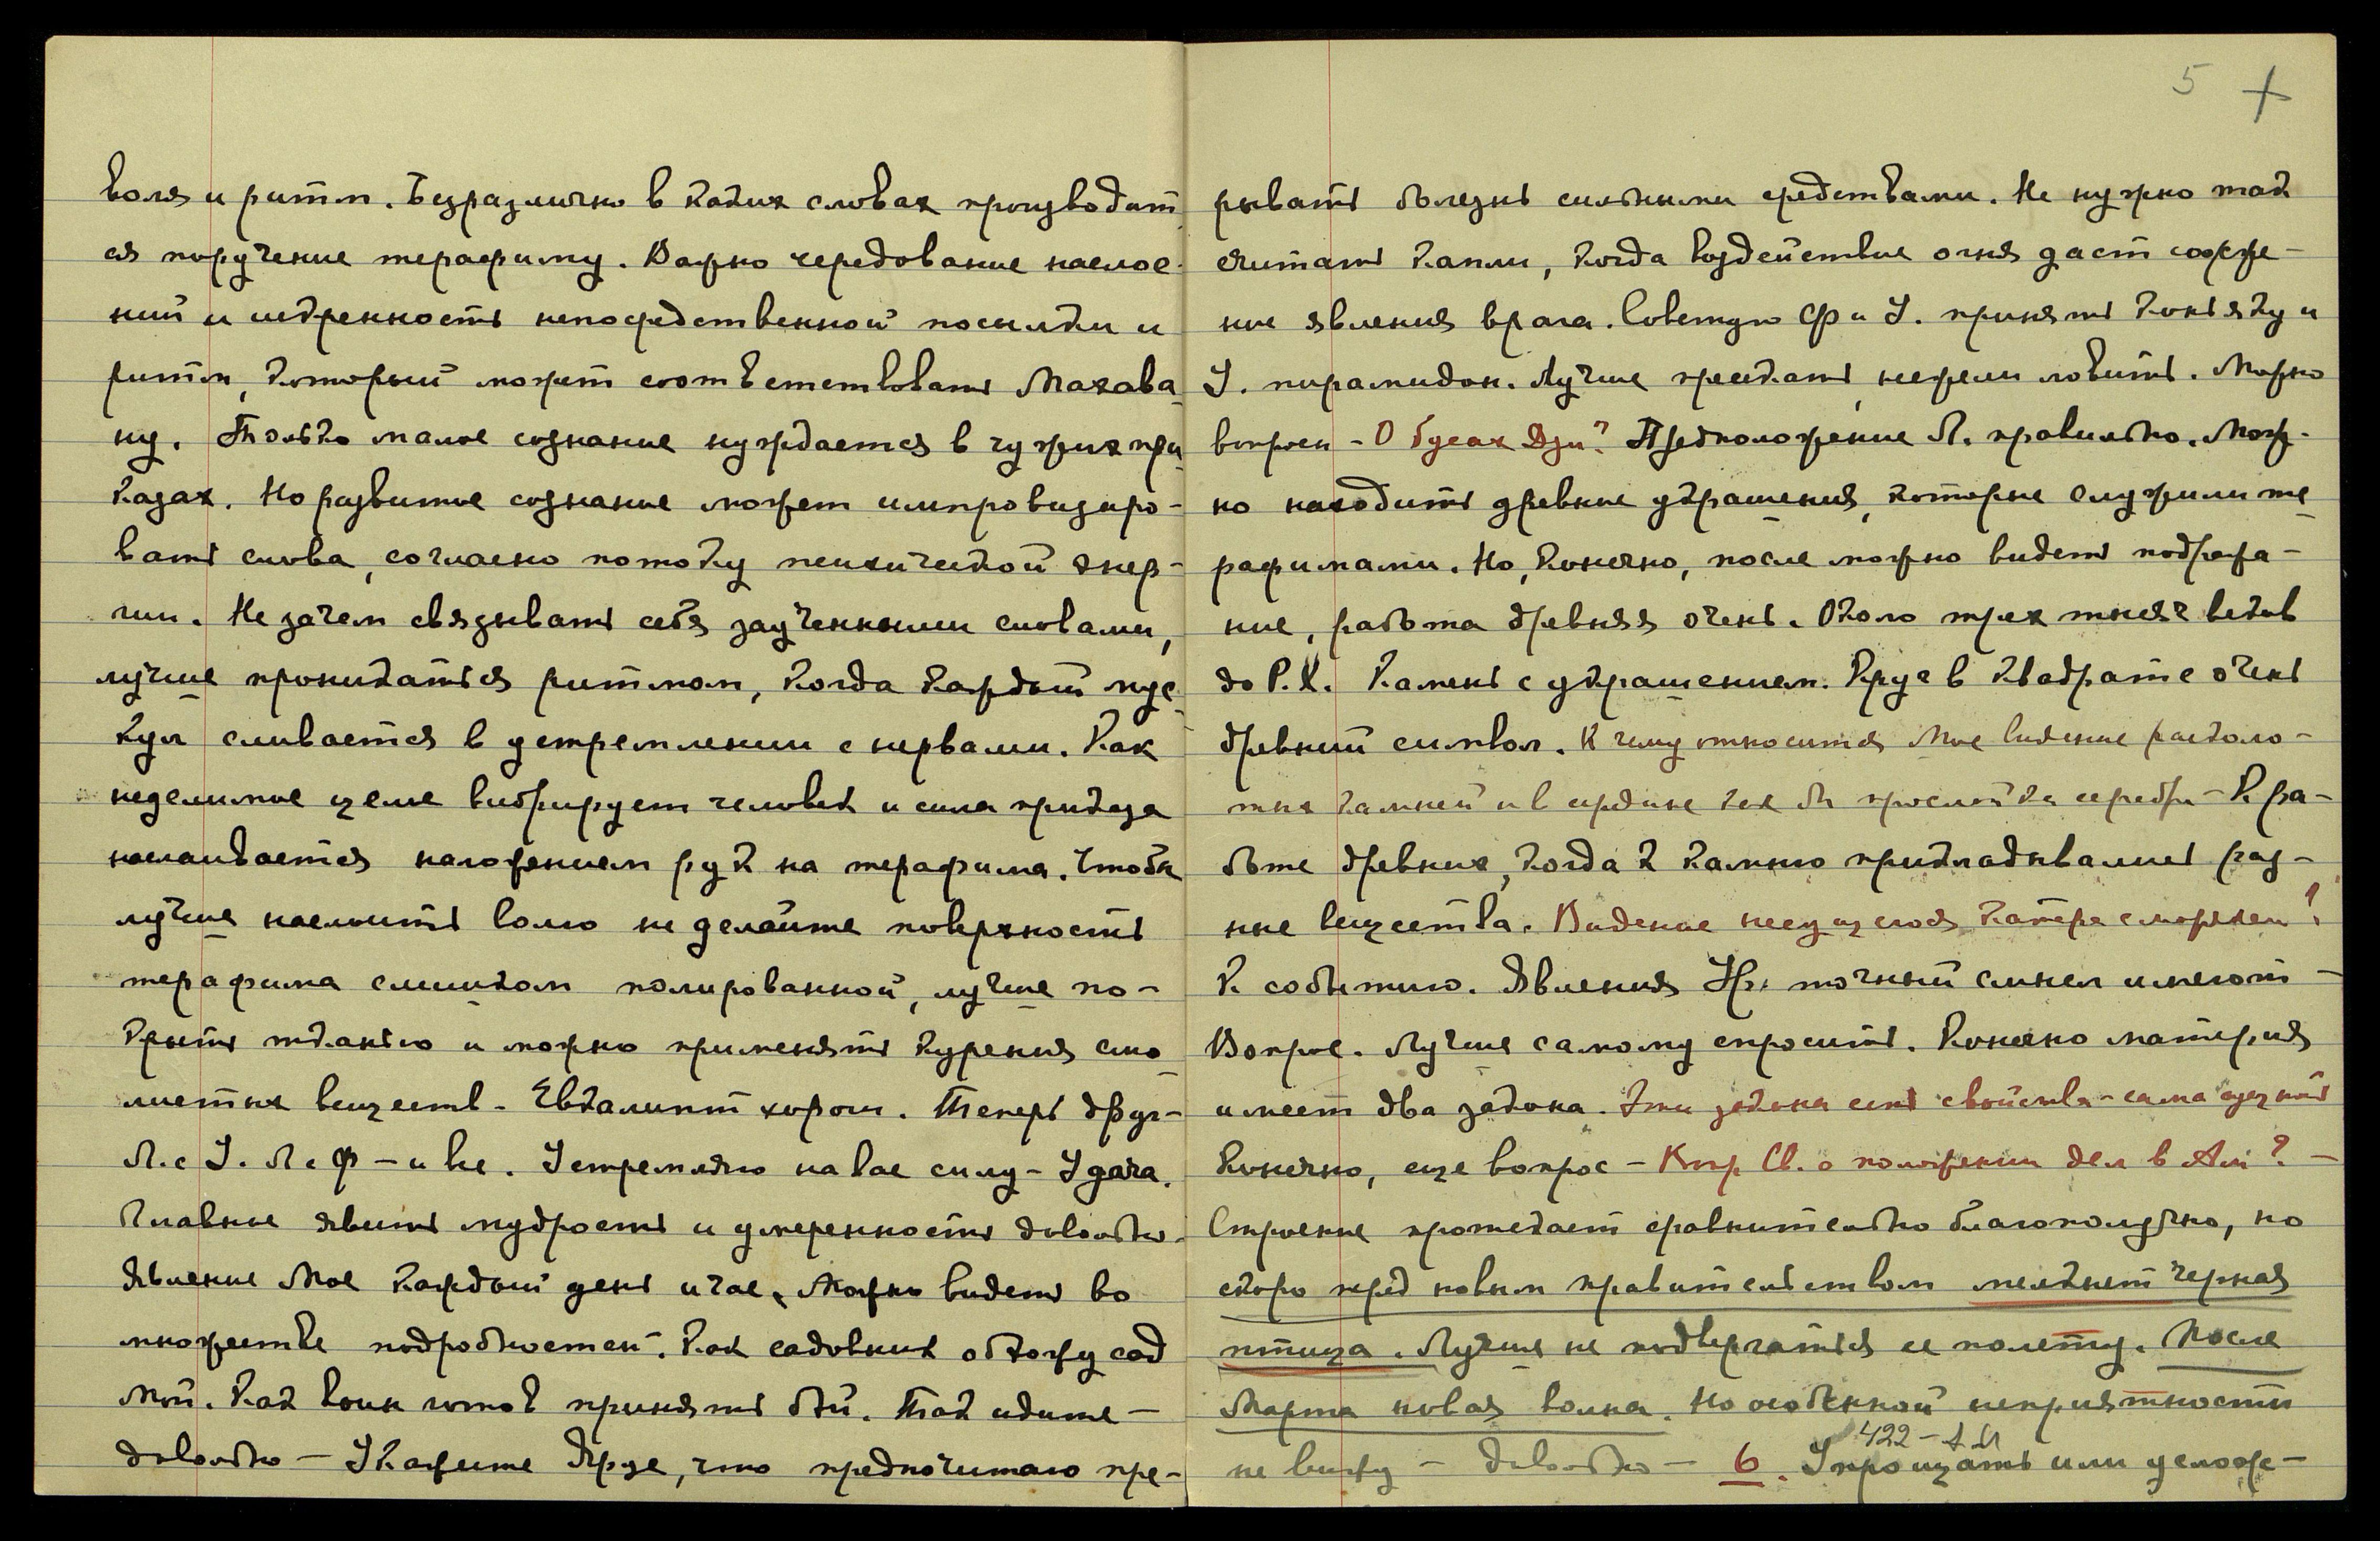 воля и ритм. Безразлично в каких словах производит
ся поручение терафиму. Важно чередование наслое-
ний и искренность непосредственной посылки и
ритм, который может соответствовать Махава
ну. Только малое сознание нуждается в чужих при
казах. Но развитое сознание может импровизиро-
вать слова, согласно потоку психической энер-
гии. Не зачем связывать себя заученными словами,
лучше проникаться ритмом, когда каждый мус
кул сливается в устремлении с нервами. Как
неделимое целое вибрирует человек и сила приказа
наслаивается наложением рук на терафима. Чтобы
лучше наслоить волю не делайте поверхность
терафима слишком полированной, лучше по-
крыть тканью и можно применять курения смо
листых веществ. Эвкалипт хорош. Теперь друг-
Л. с У. Л с Ф - и все. Устремляю на вас силу - Удача.
Главное явить мудрость и умеренность довольно.
Явление Мое каждый день и час. Можно видеть во
множестве подробностей. Как садовник обхожу сад
Мой. Как воин готов принять бой. Так идите —
довольно — Укажите Яруе, что предпочитаю пре-
5 +
рывать болезнь сильными средствами. Не нужно так
считать капли, когда воздействие огня даст сожже-
ние явления врага. Советую Ф и У. принять коньяку и
У. пирамидон. Лучше пресекать, нежели ловить. Можно
вопросы - О бусах Дзи? Предположение Л. правильно. Мож-
но находить древние украшения, которые служили те
рафимами. Но, конечно, после можно видеть подража-
ние, работа древняя очень. Около трех тысяч веков
до Р.Х. Камень с украшением. Круг в квадрате очень
древний символ. К чему относится мое видение расколо-
тых камней и в средине их бы прослойка серебра - К ра-
боте древних, когда к камню прикладывались раз-
ные вещества. Видение несущегося катера с моряком?
К событию. Явления Ур. точный смысл имеют —
Вопрос. Лучше самому спросить. Конечно материя
имеет два закона. Эти закона есть свойства - сама сущность
Конечно, еще вопрос - Кпр Св. о положении дел в Ам? —
Строение протекает сравнительно благополучно, но
скоро перед новым правительством мелькнет черная
птица. Лучше не подвергаться ее полету. После
Марта новая волна. Но особенной неприятности
422 - А Й
не вижу — довольно — 6. Упрощать или услож-